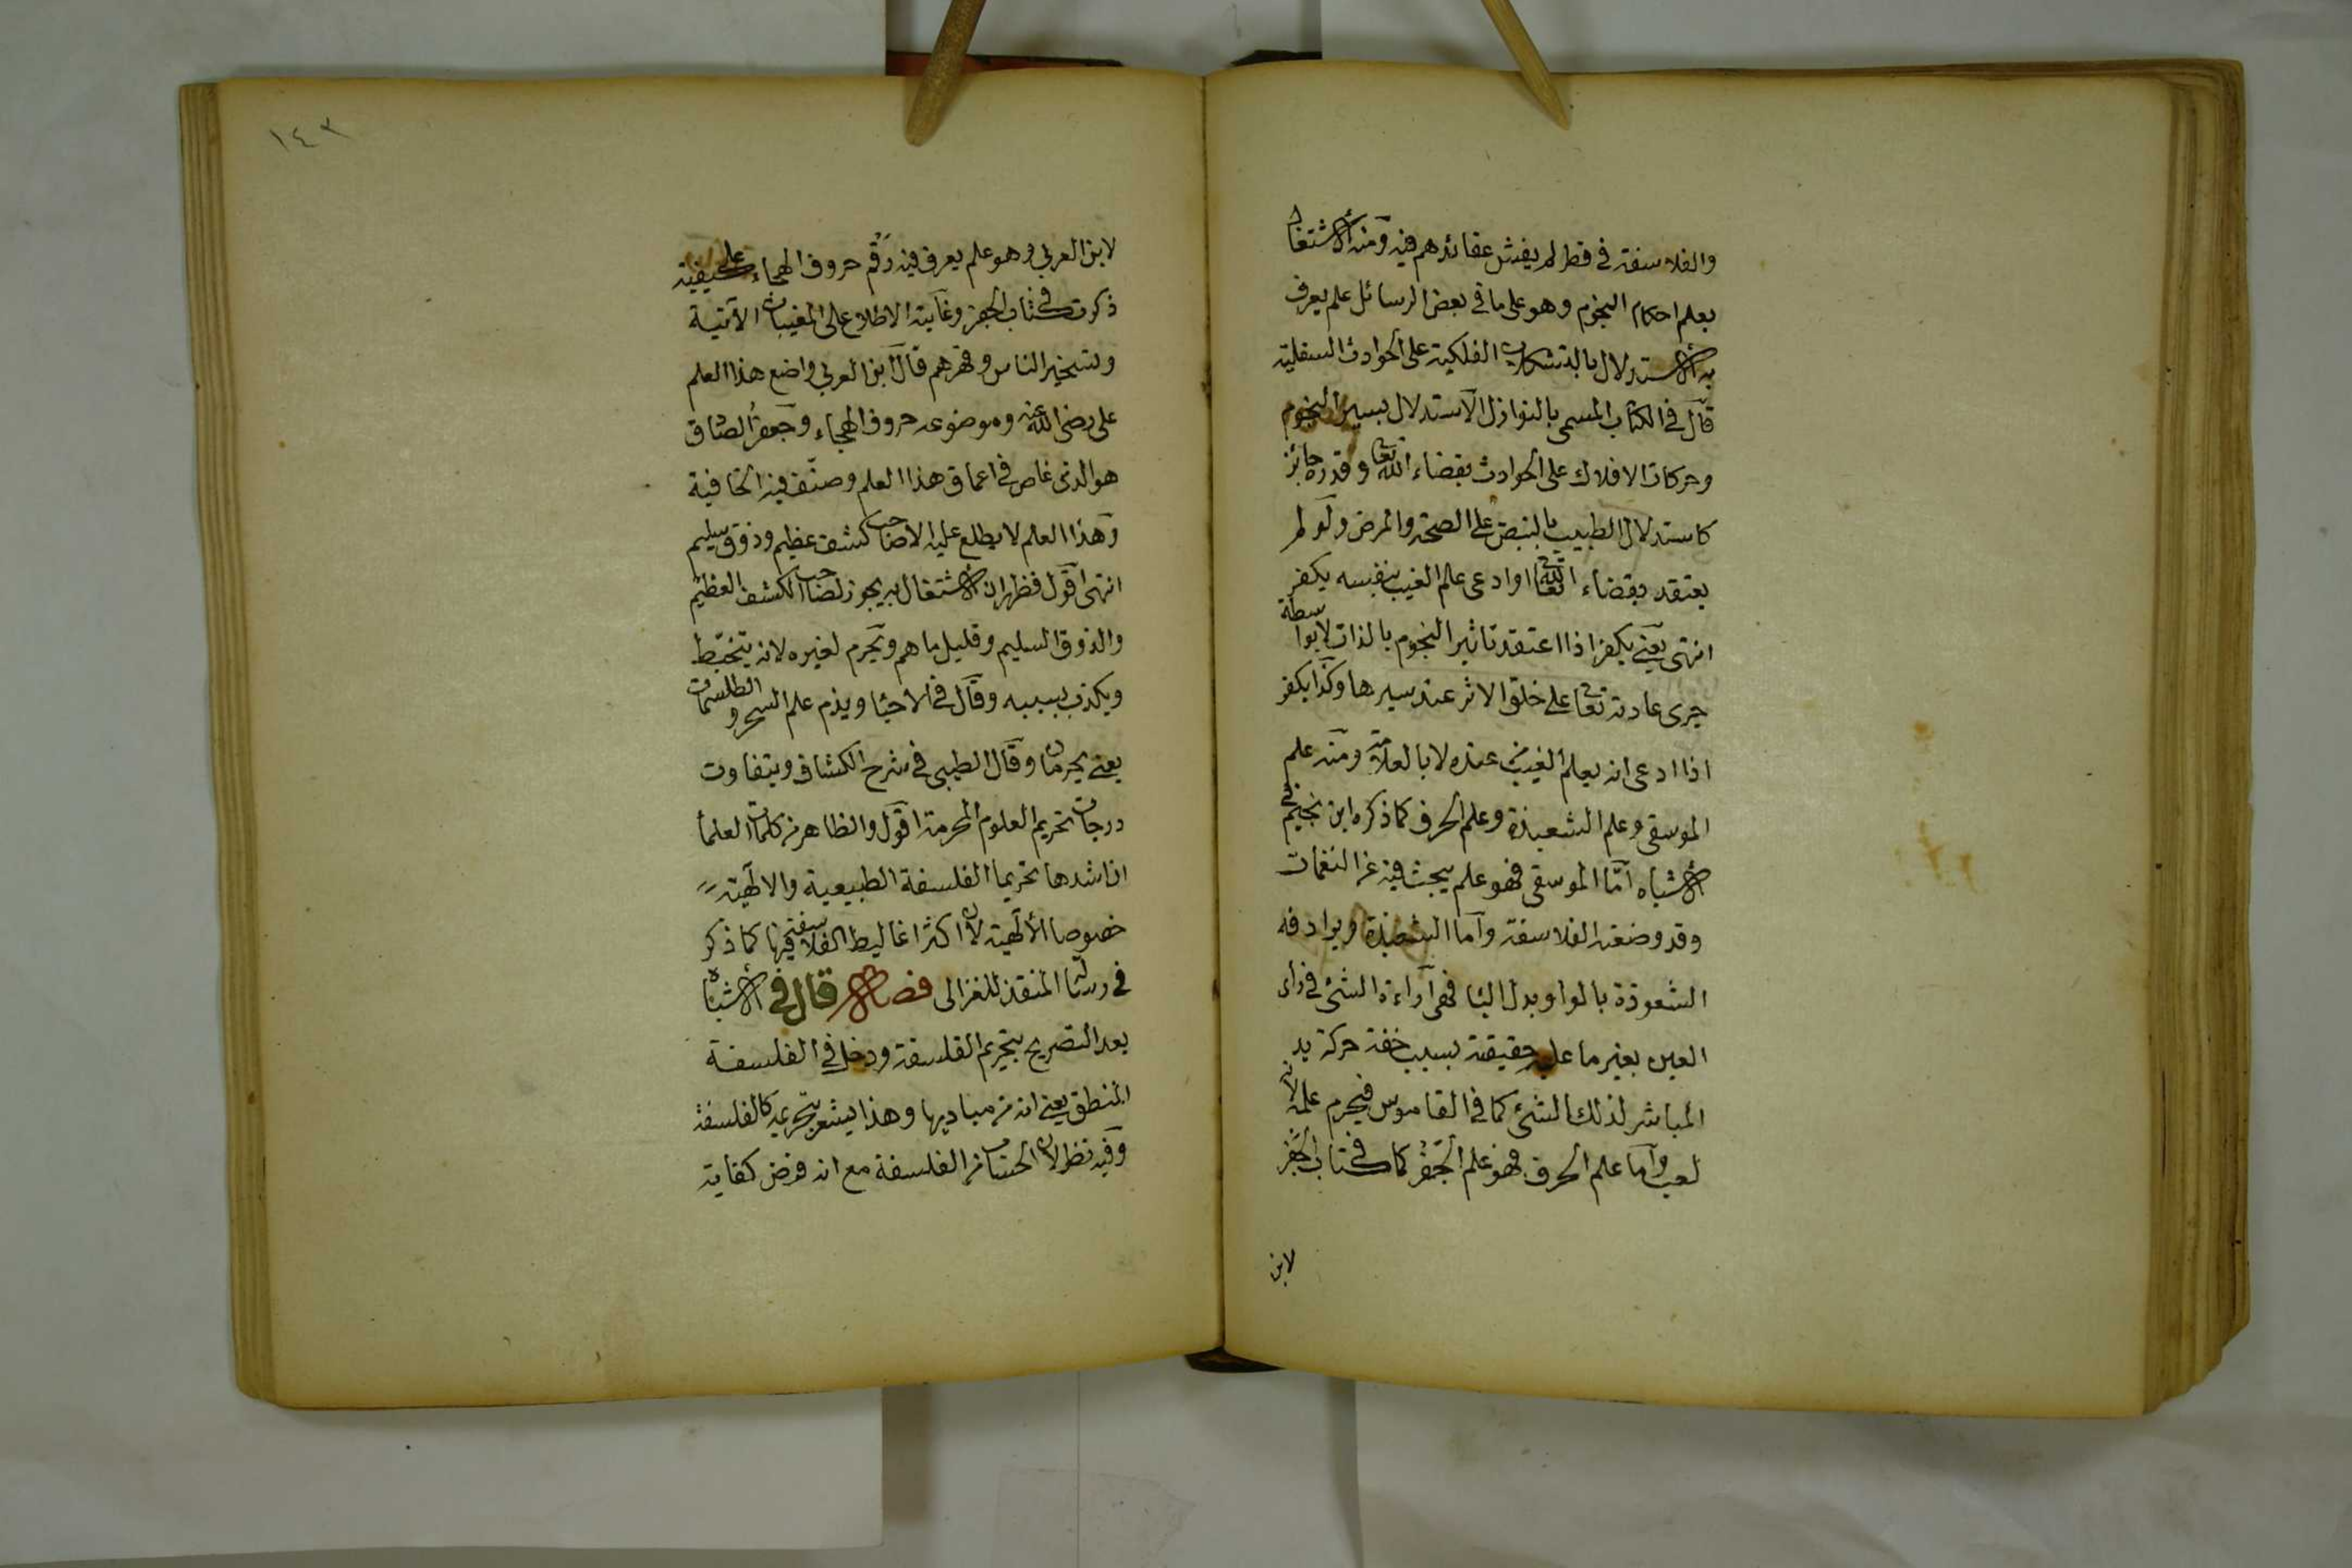 والفلاسفة في قطر لم يفش عقائدهم فيه ومنه الاشتغال
بعلم احكام النجوم وهو على ما في بعض الرسائل علم يعرف
به الاستدلال بالتشكلات الفلكية على الحوادث السفلية
قال في الكتاب المسمى بالنوازل الاستدلال بسير النجوم
وحركات الافلاك على الحوادث بقضاء الله تعا وقدره جائز
كاستدلال الطبيب بالنبض على الصحة والمرض ولو لم
يعتقد بقضاء الله تعا او ادعى علم الغيب بنفسه يكفر
انتهى يعني يكفر اذا اعتقد تاثير النجوم بالذات لا بواسطة
جرى عادته تعا على خلق الاثر عند سيرها وكذا يكفر
اذا ادعى انه يعلم الغيب من عنده لا بالعلامة ومنه علم
الموسقى وعلم الشعبذة وعلم الحرف كما ذكره ابن نجيم في
الاشباه اما الموسقى فهو علم يبحث فيه عن النغمات
وقد وضعته الفلاسفة واما الشعبذة ويرادفه
الشعوذة بالواو بدل البا فهى اراءة الشئ في رأى
العين بغير ما عليه حقيقته بسبب خفة حركة يد
المباشر لذلك الشئ كما في القاموس فيحرم علمه لانه
لعب واما علم الحرف فهو علم الجفر كما في كتاب الجفر
لابن
١٤٣
لابن العربي وهو علم يعرف فيه رقم حروف الهجاء على كيفية
ذكرت في كتاب الجفر وغايته الاطلاع على المغيبات الآتية
وتسخير الناس وقهرهم قال ابن العربي واضع هذا العلم
على رضى الله عنه وموضوعه حروف الهجاء وجعفر الصادق
هو الذى غاص في اعماق هذا العلم وصنف فيه الخافية
وهذا العلم لا يطلع عليه الا صاحب كشف عظيم وذوق سليم
انتهى اقول فظهر ان الاشتغال به يجوز لصاحب الكشف العظيم
والذوق السليم وقليل ما هم ويحرم لغيره لانه يتخبط
ويكذب بسببه وقال في الاحيا ويذم علم السحر والطلسمات
يعني يحرمان وقال الطيبى في شرح الكشاف ويتفاوت
درجات تحريم العلوم المحرمة اقول والظاهر من كلمات العلمأ
ان اشدها تحريما الفلسفة الطبيعية والالهية
خصوصا الألهية لان اكثر اغاليط الفلاسفة فيها كما ذكر
في رسالة المنقذ للغزالى فصل قال في الاشباه
بعد التصريح بتحريم الفلسفة ودخل في الفلسفة
المنطق يعني انه من مباديها وهذا يشعر بتحريمه كالفلسفة
وفيه نظر لان الحساب من الفلسفة مع انه فرض كفاية